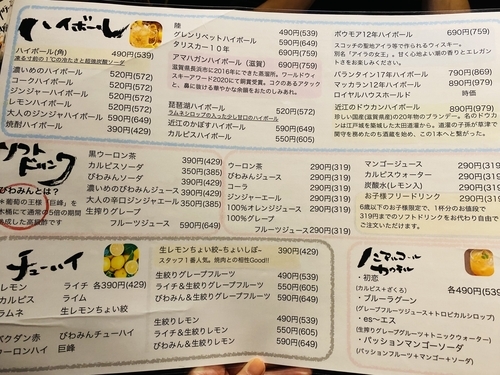 ハイボール
ハイボール(角) 490円(539)
凍る寸前の1℃の冷たさと超強炭酸ソーダ
濃いめのハイボール 520円(572)
コークハイボール 520円(572)
ジンジャーハイボール 520円(572)
レモンハイボール 520円(572)
大人のジンジャーハイボール 590円(649)
焼酎ハイボール 390円(429)
陸
グレンリベットハイボール 490円(539)
タリスカー10年 690円(759)
アマハガンハイボール(滋賀) 690円(759)
滋賀県長浜市に2016年にできた蒸溜所。ワールドウィ
スキーアワード2020にて銅賞受賞。コクのあるアタック
と、鼻に抜ける華やかな余韻をおたのしみあれ。
琵琶湖ハイボール 520円(572)
ラムネシロップの入った少し甘口のハイボール
近江のかぼすハイボール 490円(539)
カルピスハイボール 550円(605)
ボウモア12年ハイボール 690円(759)
スコッチの聖地アイラ等で作られるウィスキー。
別名「アイラの女王」。甘く心地よい潮の香りとエレガン
トさをお楽しみください。
バランタイン17年ハイボール 790円(869)
マッカラン12年ハイボール 890円(979)
ロイヤルハウスホールド 時価
近江のドウカンハイボール 890円(979)
珍しい国産(滋賀県産)の20年物のブランデー。名のドウカ
ンは江戸城を築城した太田道灌から。道灌の子孫が草津で
関守を務めたのち酒蔵を始め、この1本へと繋がった。
ソフトドリンク
びわみんとは?
"木葡萄の王様「巨峰」を
木桶にて通常の5倍の期間
熟成した高級酢です
黒ウーロン茶 390円(429)
カルピスソーダ 350円(385)
びわみんソーダ 390円(429)
濃いめのびわみんジュース 390円(429)
大人の辛口ジンジャエール 350円(385)
生搾りグレープ
フルーツジュース 390円(429)
ウーロン茶 290円(319)
びわみんジュース 290円(319)
コーラ 290円(319)
ジンジャーエール 290円(319)
100%オレンジジュース 290円(319)
100%グレープ
フルーツジュース 290円(319)
マンゴージュース 290円(319)
カルピスウォーター 290円(319)
炭酸水(レモン入) 290円(319)
お子様フリードリンク 290円(319)
6歳以下のお子様限定で、1杯分のお値段で
319円までのソフトドリンクをお代わり自由で
ご注文できます。
チューハイ
レモン ライチ 各390円(429)
カルピス ライム
ラムネ 生レモンちょい絞
バクダン赤 びわみんチューハイ
ウーロンハイ 巨峰
生レモンちょい絞~ちょいしぼ~ 390円(429)
スタッフ1番人気。焼肉との相性Good!!
生絞りグレープフルーツ 490円(539)
ライチ&生絞りグレープフルーツ 550円(605)
びわみん&生絞りグレープフルーツ 590円(649)
生絞りレモン 490円(539)
ライチ&生絞りレモン 550円(605)
びわみん&生絞りレモン 590円(649)
ノンアルコールカクテル
・初恋 各490円(539)
(カルピス+ざくろ)
・ブルーラグーン
(グレープフルーツジュース+トロピカルシロップ)
・es〜エス
(生搾りグレープフルーツ+トニックウォーター)
・パッションマンゴーソーダ
(パッションフルーツ+マンゴー+ソーダ)